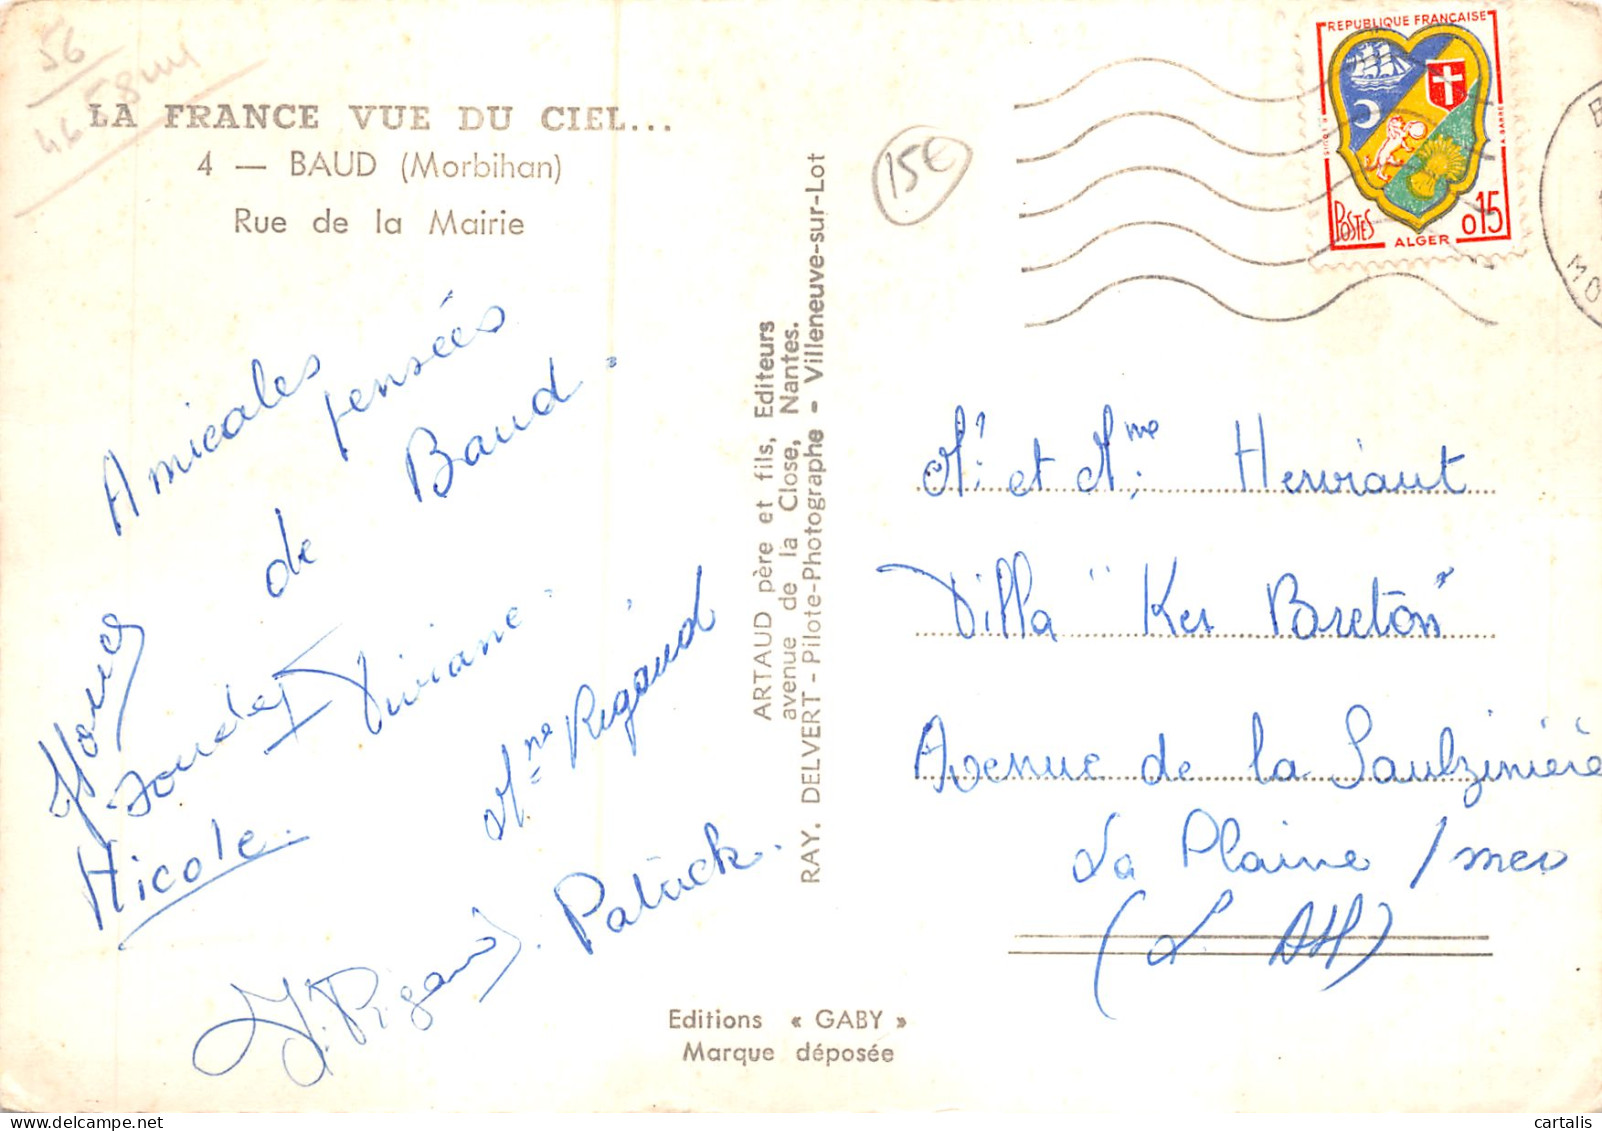 56
46 58
LA FRANCE VUE DU CIEL...
4 — BAUD (Morbihan)
Rue de la Mairie
Amicales
pensées
de Baud.
Viviane.
Nicole.
Mme Rigaud
J. Rigaud. Patrick.
ARTAUD père et fils, Editeurs
avenue de la Close, Nantes.
RAY. DELVERT - Pilote-Photographe - Villeneuve-sur-Lot
Editions « GABY »
Marque déposée
15€
REPUBLIQUE FRANÇAISE
POSTES
ALGER
0,15
B
MO
Mr. et Mme. Herviaut
Villa "Ker Breton"
Avenue de la Saulzinière
La Plaine / mer
(L. Atl)
cartalis
delcampe.net